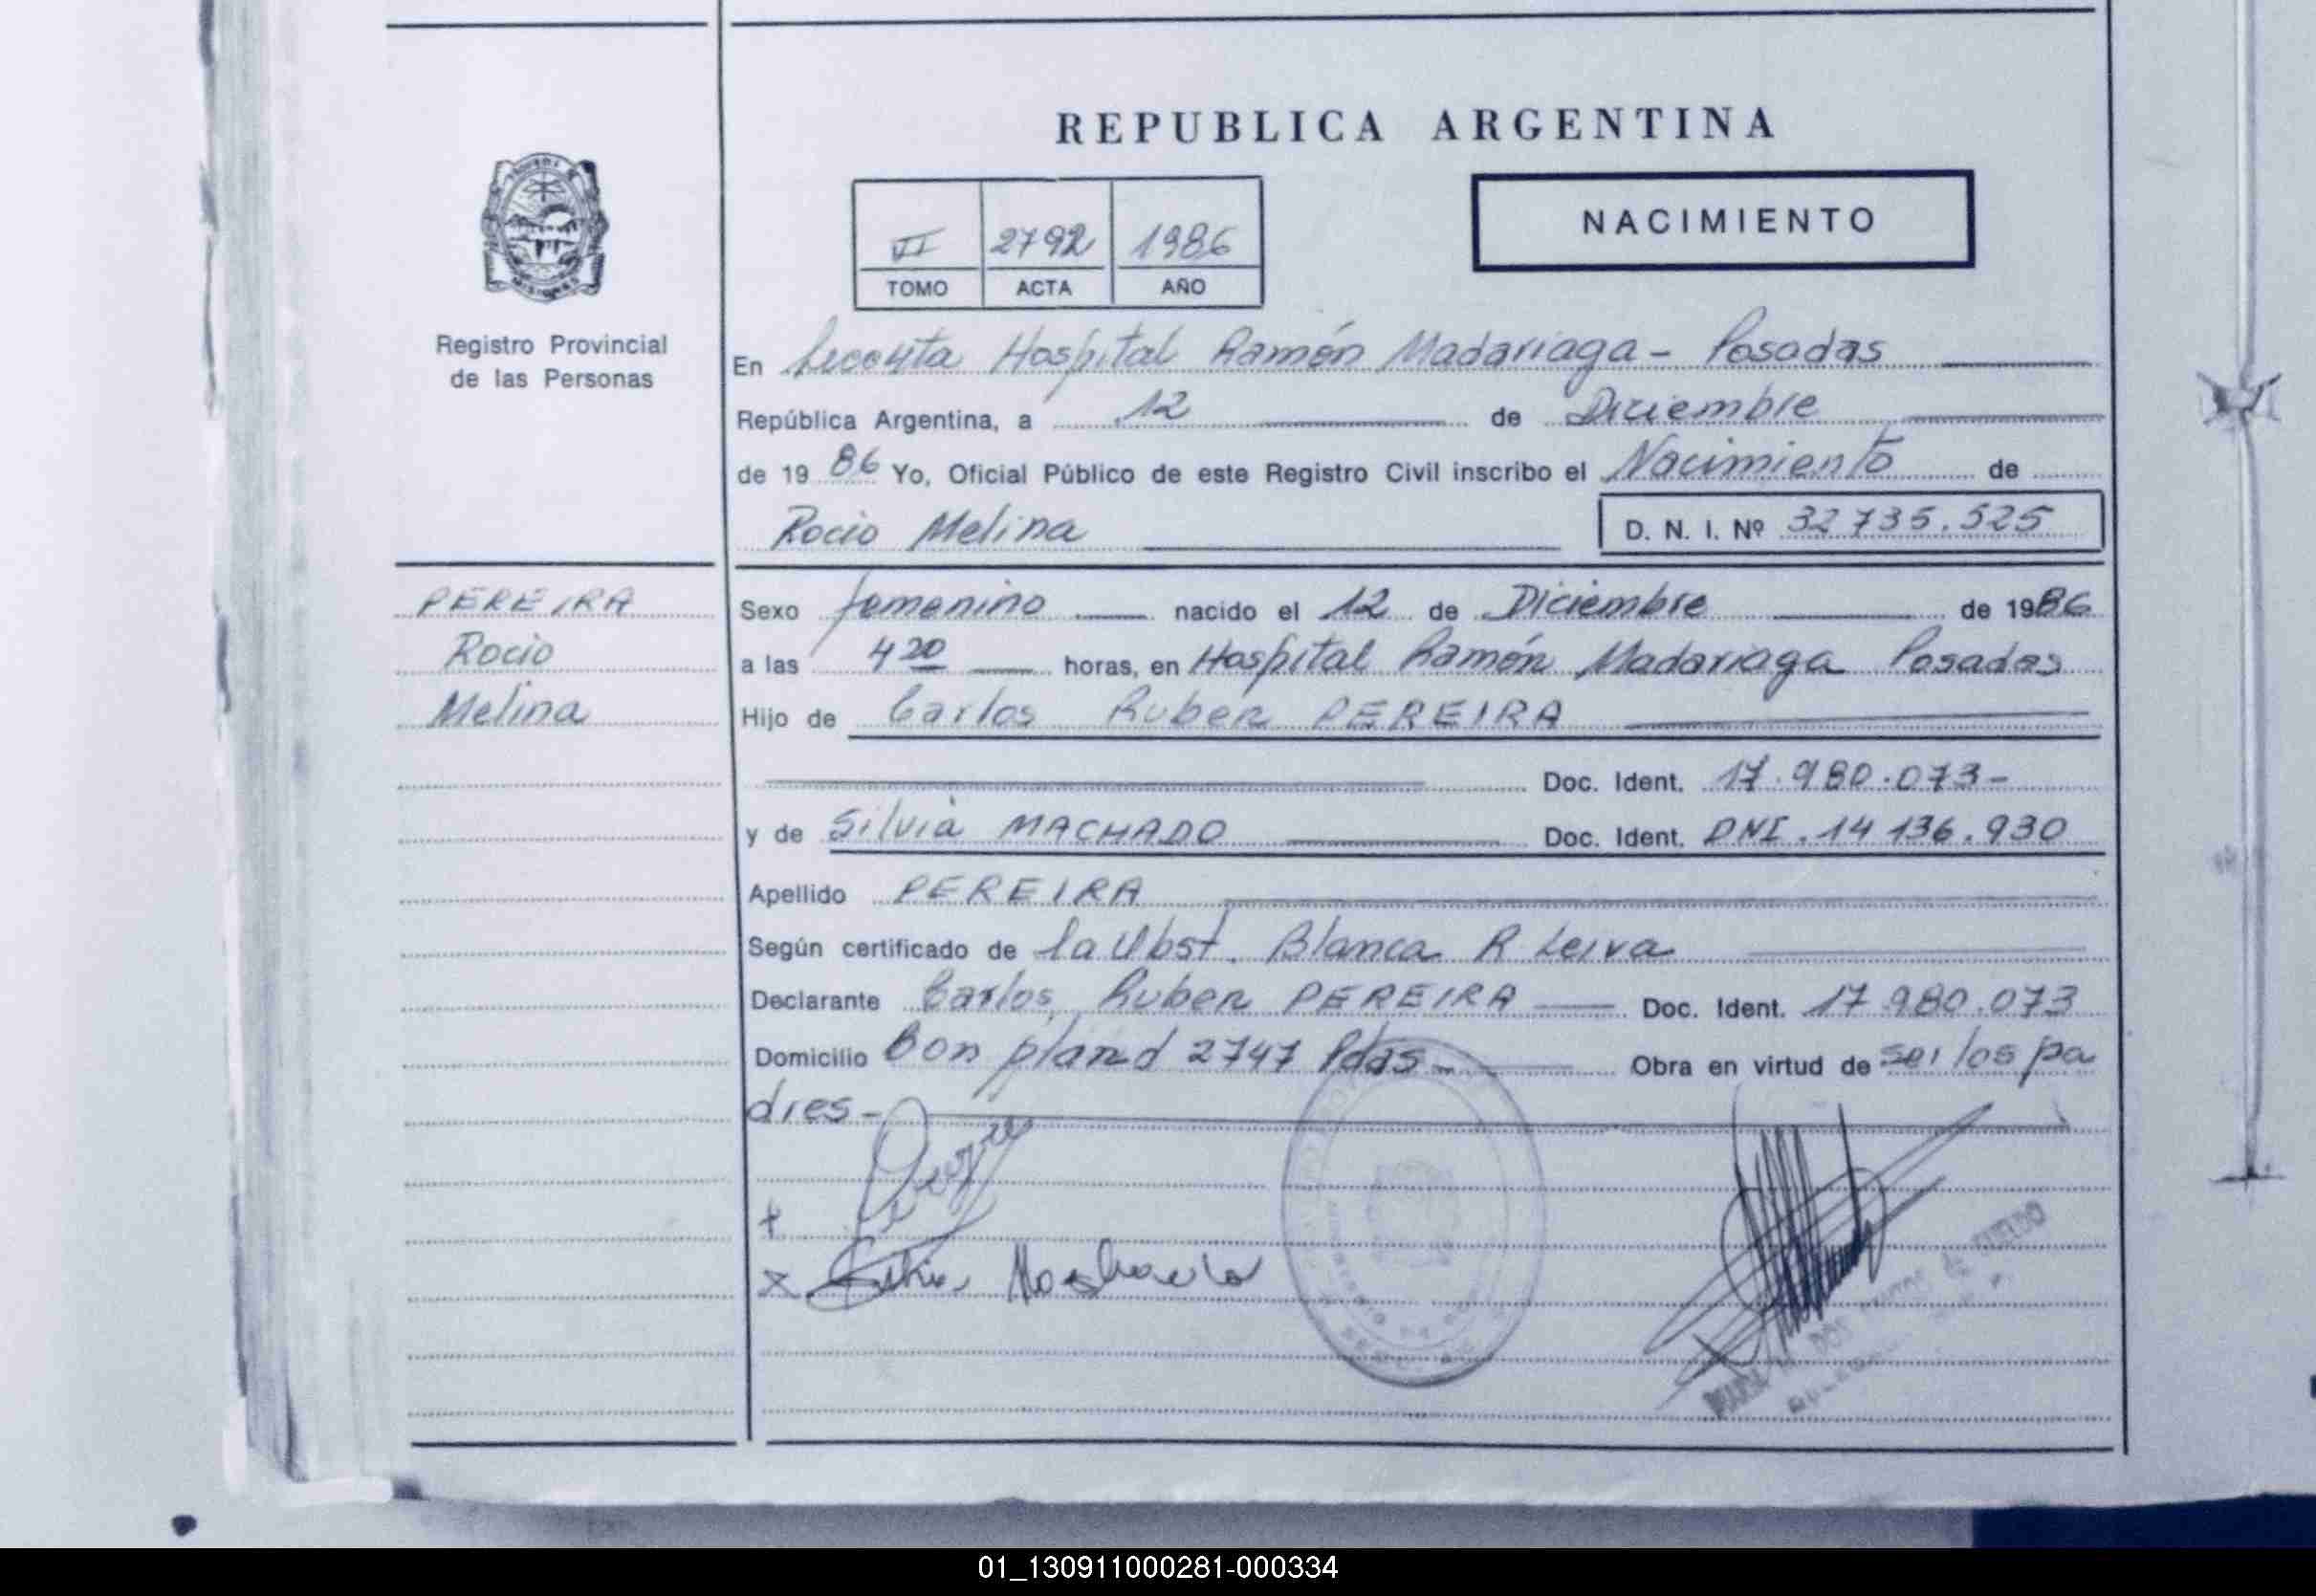 REPUBLICA ARGENTINA
NACIMIENTO
VI 2792 1986
TOMO ACTA AÑO
MISIONES
Registro Provincial
de las Personas
En Seccⁿ Hospital Ramón Madariaga - Posadas
República Argentina, a 12 de Diciembre
de 1986 Yo, Oficial Público de este Registro Civil inscribo el Nacimiento de
Rocio Melina D. N. I. Nº 32735.525
PEREIRA
Rocio
Melina
Sexo femenino nacido el 12 de Diciembre de 1986
a las 4 20 horas, en Hospital Ramón Madariaga Posadas
Hijo de Carlos Ruben PEREIRA
Doc. Ident. 17.980.073-
y de Silvia MACHADO Doc. Ident. DNI. 14 136.930
Apellido PEREIRA
Según certificado de la Obst. Blanca R Leiva
Declarante Carlos Ruben PEREIRA Doc. Ident. 17 980.073
Domicilio Bon pland 2747 Pdas - Obra en virtud de ser los pa
dres -
01_130911000281-000334